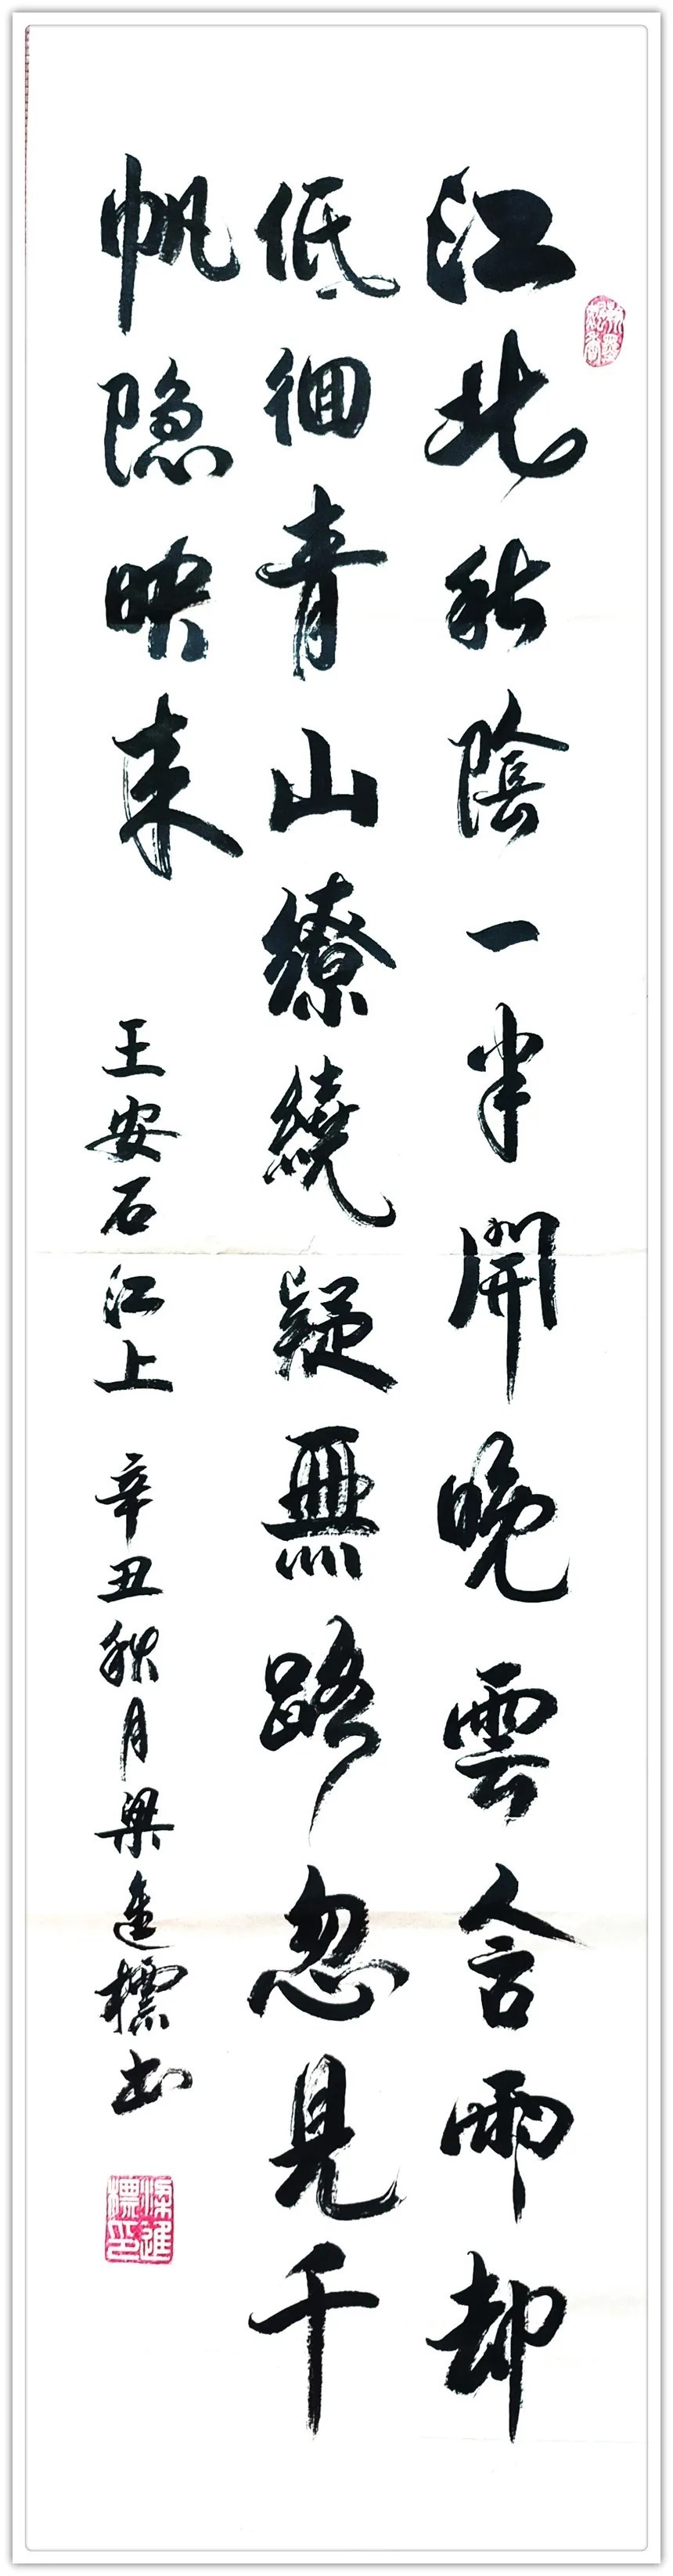 江北秋陰一半開晚雲含雨却
低徊青山繚繞疑無路忽見千
帆隐映来
王安石江上 辛丑秋月梁進標书
梁進標印